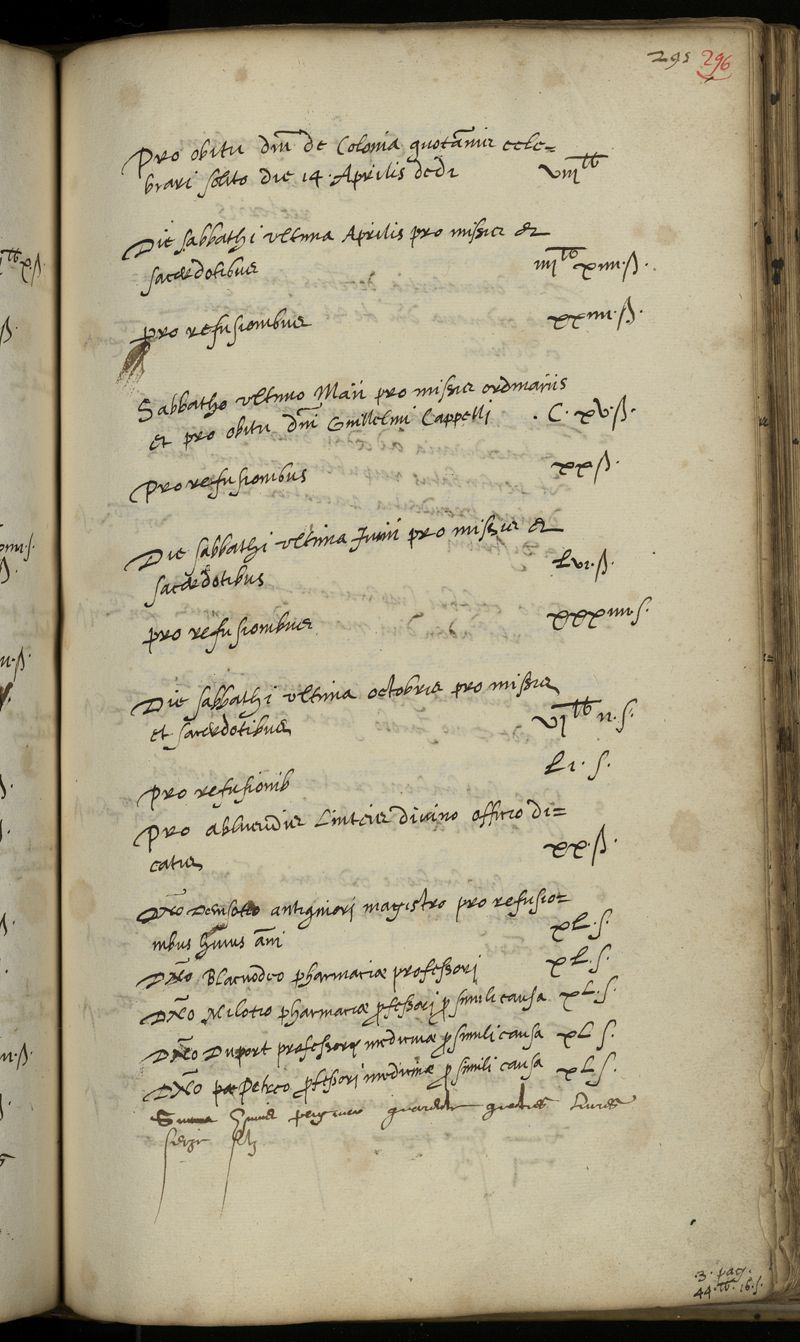 295 296
Pro obitu dni de Colonia quotannis cele=
brari solito die 14. Aprilis dedi viii lb
Die sabbathi ultima Aprilis pro missis et
sacerdotibus iiii lb xiiii. ß.
pro refusionibus xxiiii. ß.
Sabbatho ultimo Maii pro missis ordinariis
et pro obitu dni Guillelmi Cappelli . C. xv. ß.
Pro refusionibus xx ß.
Die sabbathi ultima Junii pro missis et
sacerdotibus Lvi. ß.
pro refusionibus xxxiiii. s.
Die sabbathi ultima octobris pro missis
et sacerdotibus vi lb ii. s.
Pro refusionib Li. s.
Pro abluendis Linteis divino officio di=
catis xx. ß.
Dno antiquiori magistro pro refusio=
nibus huius ani xL. s.
Dno Blacuodeo pharmaciæ professori xL. s.
Dno Milotio pharmaciæ pfessori p simili causa xL. s.
Dno Duport professori medicinæ p simili causa xL s.
Dno Petreo pfessori medicinæ p simili causa xL s.
Livres
.3. pag.
44. lb. 16. s.